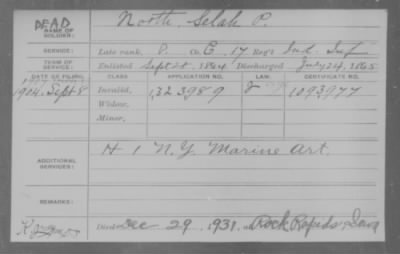 DEAD
NAME OF SOLDIER: North, Selah P.
SERVICE: Late rank, P. Co. E, 17 Reg't Ind. Inf
TERM OF SERVICE: Enlisted Sept 28, 1864 Discharged July 24, 1865
DATE OF FILING. CLASS. APPLICATION NO. LAW. CERTIFICATE NO.
1904, Sept 8 Invalid, 1323989 1093977
Widow,
Minor,
ADDITIONAL SERVICES: H 1 N.Y. Marine Art.
REMARKS:
Died Dec 29, 1931, at Rock Rapids, Iowa